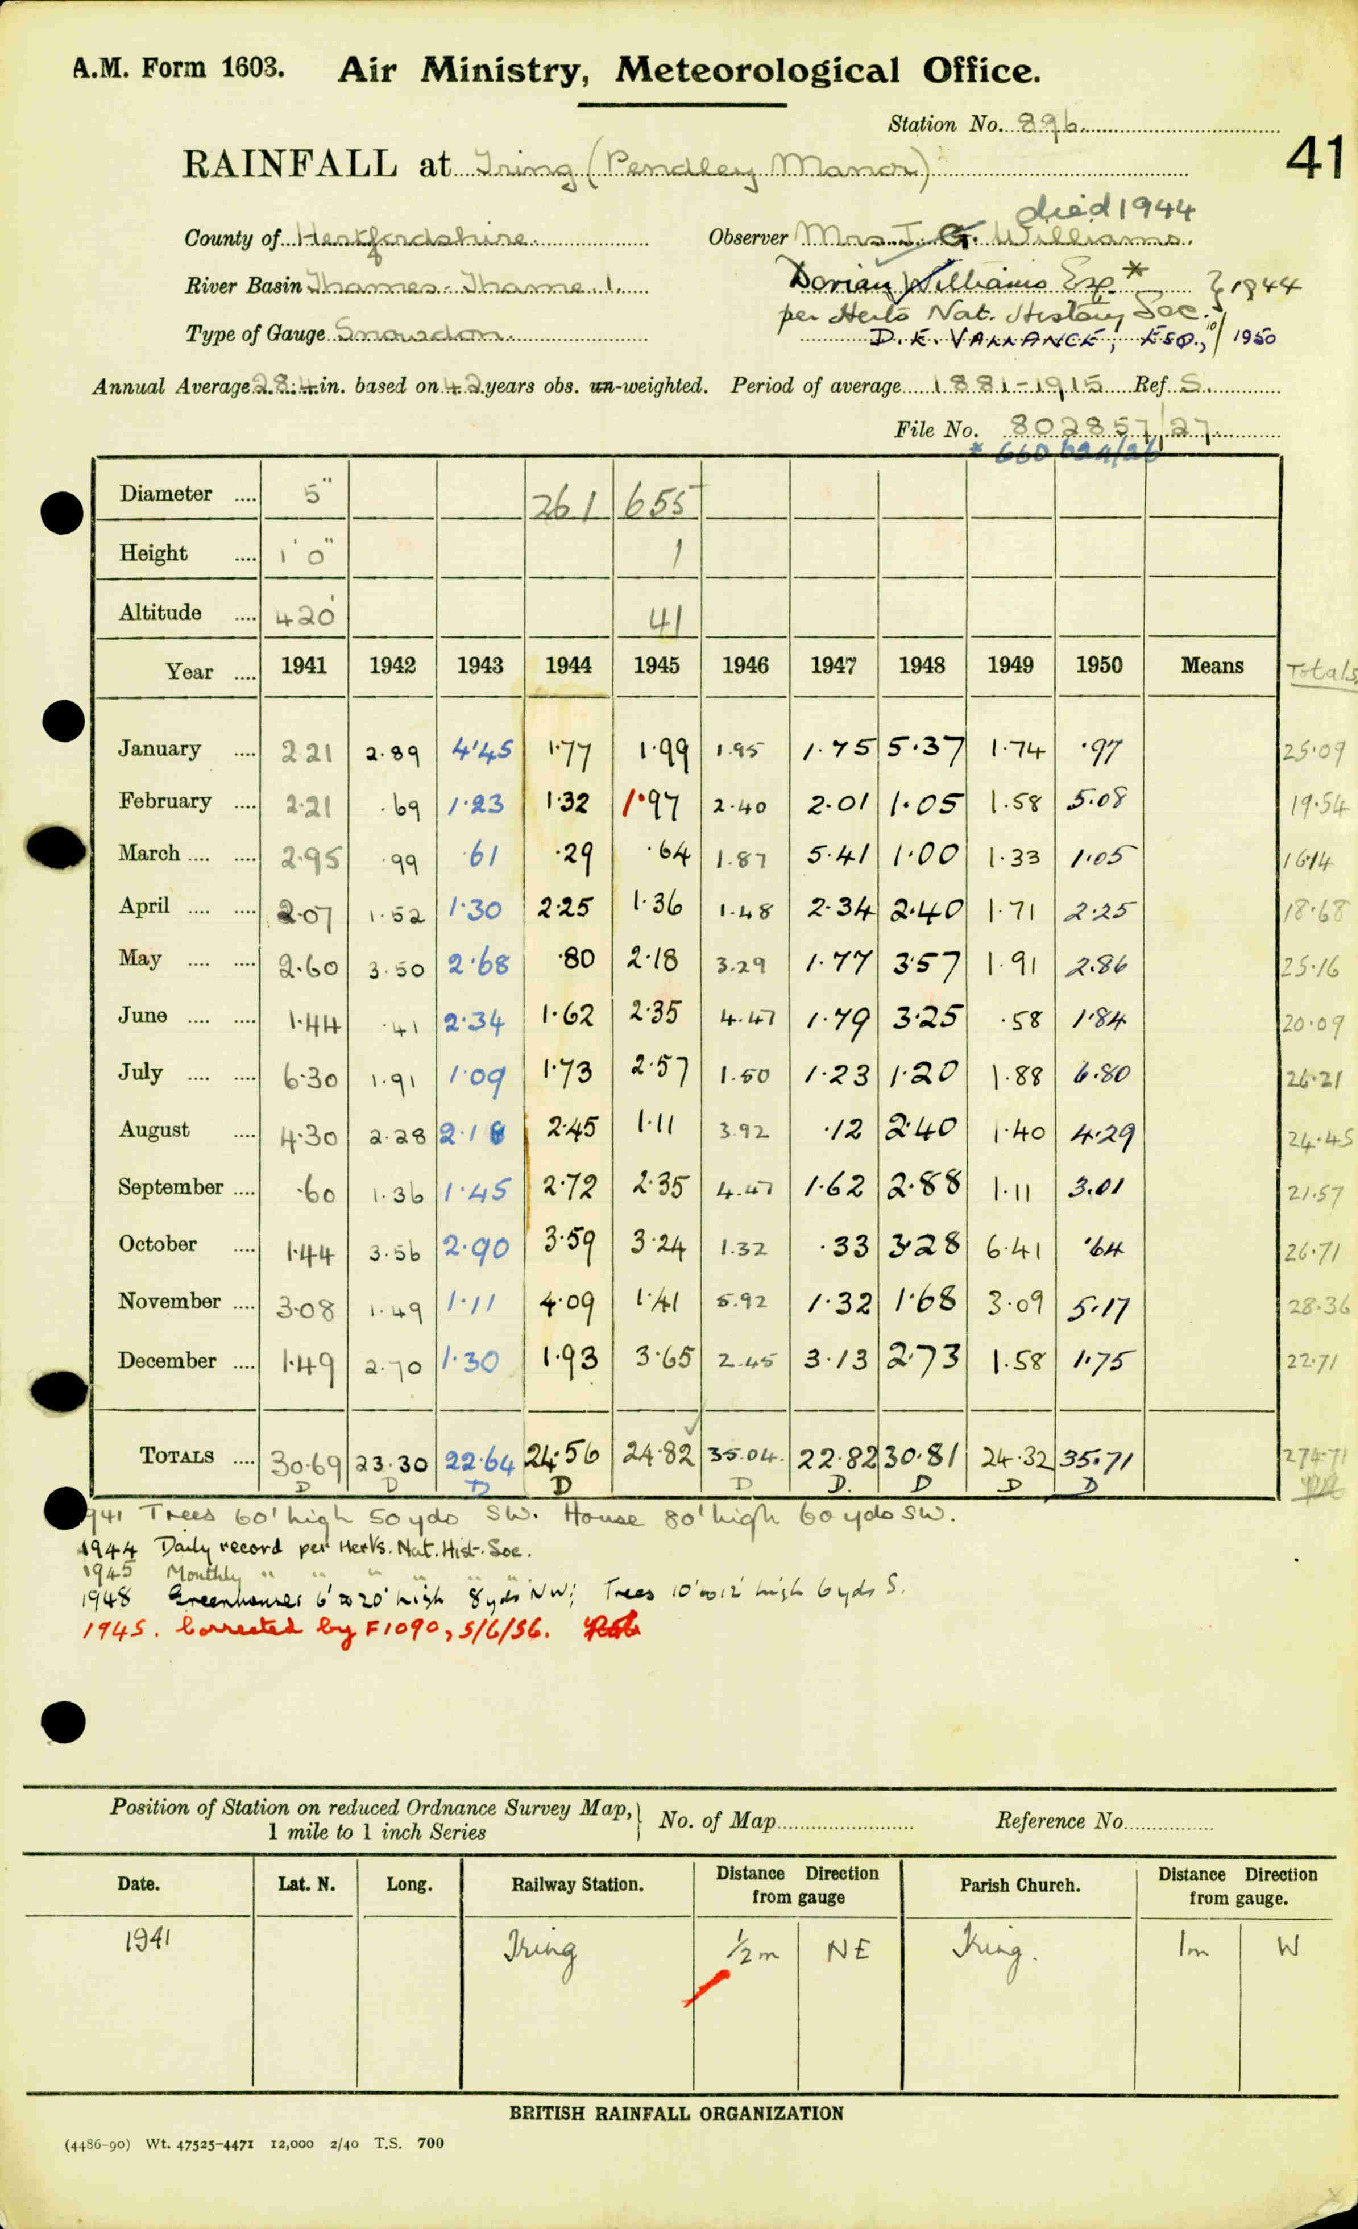 A.M. Form 1603. Air Ministry, Meteorological Office.
Station No. 896
41
RAINFALL at Tring (Pendley Manor)
died 1944
County of Hertfordshire. Observer Mrs I. G. Williams.
River Basin Thames - Thame 1. Dorian Williams Esq.* } 1944
per Herts Nat. History Soc.
Type of Gauge Snowdon. D. E. VALLANCE, ESQ., 10/1950
Annual Average 28.4 in. based on 42 years obs. un-weighted. Period of average 1881-1915 Ref S.
File No. 802857/27
* 660624/26
Diameter .... 5" 261 655
Height .... 1'0" 1
Altitude .... 420' 41
Year .... 1941 1942 1943 1944 1945 1946 1947 1948 1949 1950 Means Totals
January .... 2.21 2.89 4.45 1.77 1.99 1.95 1.75 5.37 1.74 .97 25.09
February .... 2.21 .69 1.23 1.32 1.97 2.40 2.01 1.05 1.58 5.08 19.54
March .... .... 2.95 .99 .61 .29 .64 1.87 5.41 1.00 1.33 1.05 16.14
April .... .... 2.07 1.52 1.30 2.25 1.36 1.48 2.34 2.40 1.71 2.25 18.68
May .... .... 2.60 3.50 2.68 .80 2.18 3.29 1.77 3.57 1.91 2.86 25.16
June .... .... 1.44 .41 2.34 1.62 2.35 4.47 1.79 3.25 .58 1.84 20.09
July .... .... 6.30 1.91 1.09 1.73 2.57 1.50 1.23 1.20 1.88 6.80 26.21
August .... 4.30 2.28 2.18 2.45 1.11 3.92 .12 2.40 1.40 4.29 24.45
September .... .60 1.36 1.45 2.72 2.35 4.47 1.62 2.88 1.11 3.01 21.57
October .... 1.44 3.56 2.90 3.59 3.24 1.32 .33 3.28 6.41 .64 26.71
November .... 3.08 1.49 1.11 4.09 1.41 5.92 1.32 1.68 3.09 5.17 28.36
December .... 1.49 2.70 1.30 1.93 3.65 2.45 3.13 2.73 1.58 1.75 22.71
TOTALS .... 30.69 23.30 22.64 24.56 24.82 35.04 22.82 30.81 24.32 35.71 274.71
D D D D D D. D D D
941 Trees 60' high 50 yds SW. House 80' high 60 yds SW.
1944 Daily record per Herts. Nat. Hist. Soc.
1945 Monthly " " " " " "
1948 Greenhouses 6' to 20' high 8 yds NW; Trees 10' to 12' high 6 yds S.
1945. Corrected by F1090, 5/6/56.
Position of Station on reduced Ordnance Survey Map, } No. of Map Reference No.
1 mile to 1 inch Series
Date. Lat. N. Long. Railway Station. Distance Direction from gauge Parish Church. Distance Direction from gauge.
1941 Tring 1/2 m NE Tring. 1m W
BRITISH RAINFALL ORGANIZATION
(4486-90) Wt. 47525-4471 12,000 2/40 T.S. 700